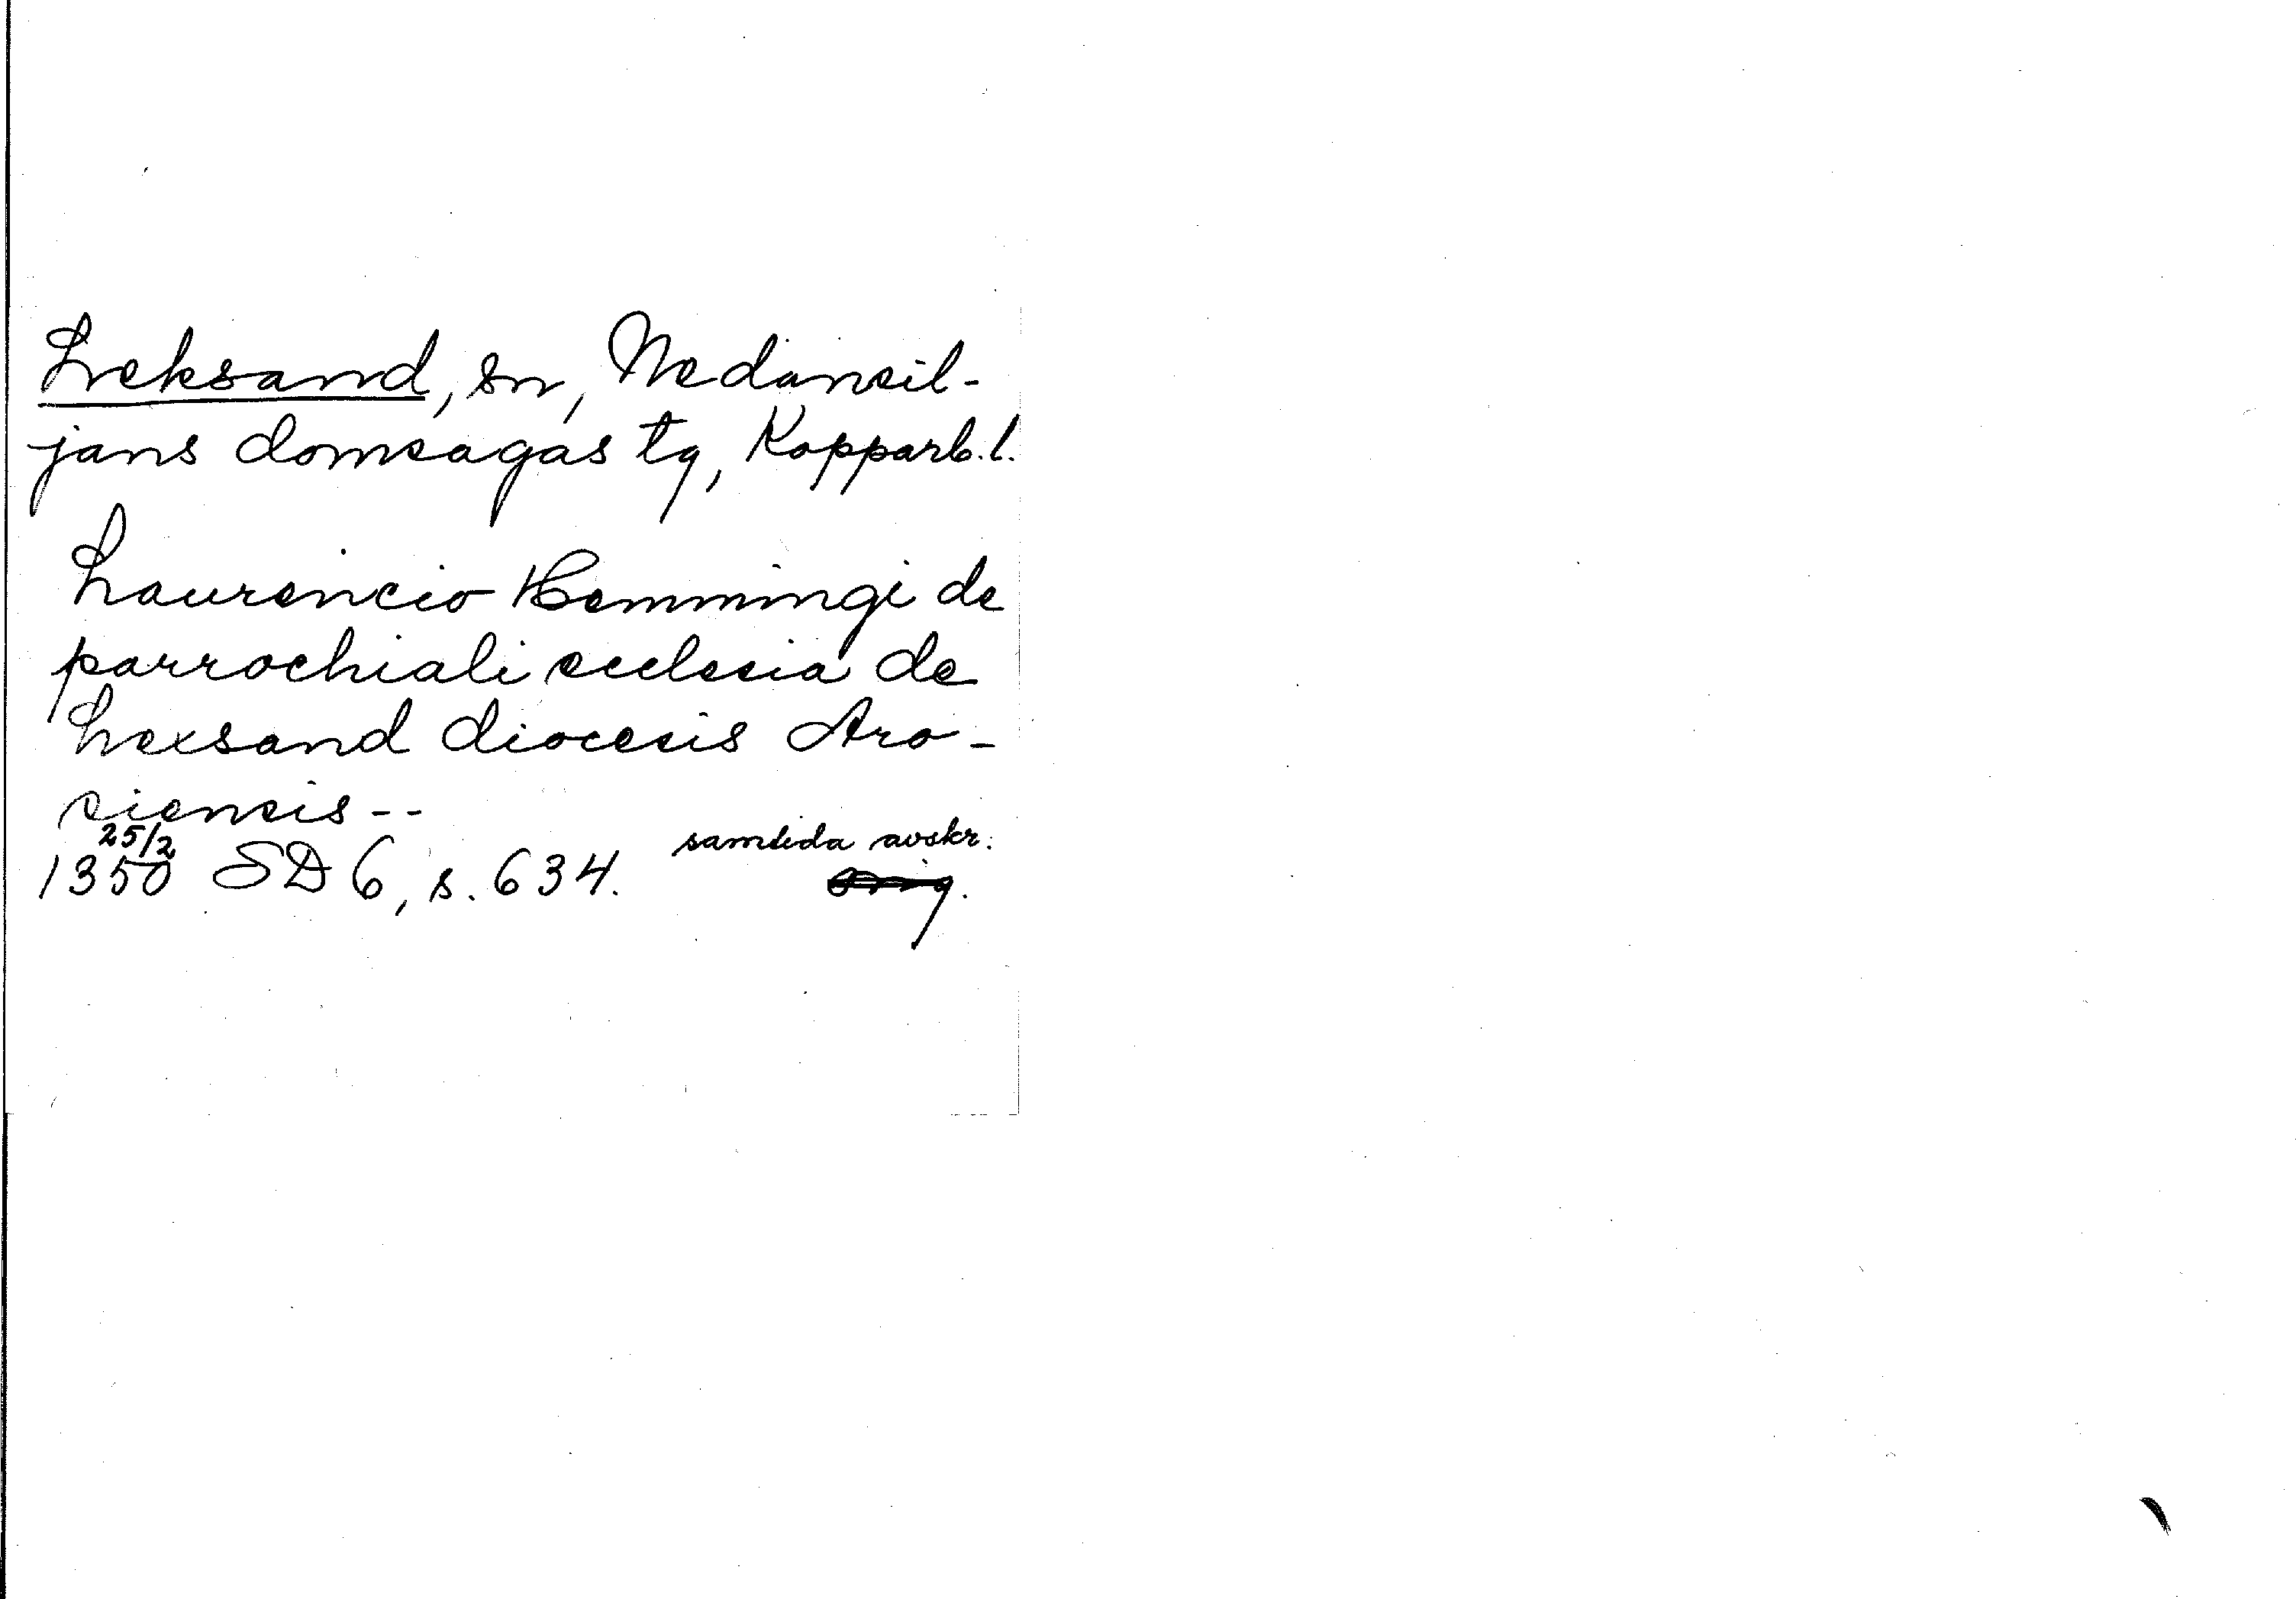 Leksand, sn, Nedansil-
jans domsagas tg, Kopparb. l.
Laurencio Hemmingi de
parrochiali ecclesia de
Lexsand diocesis Aro-
siensis--
25/2 samtida avskr.
1350 SD 6, s. 634. orig.